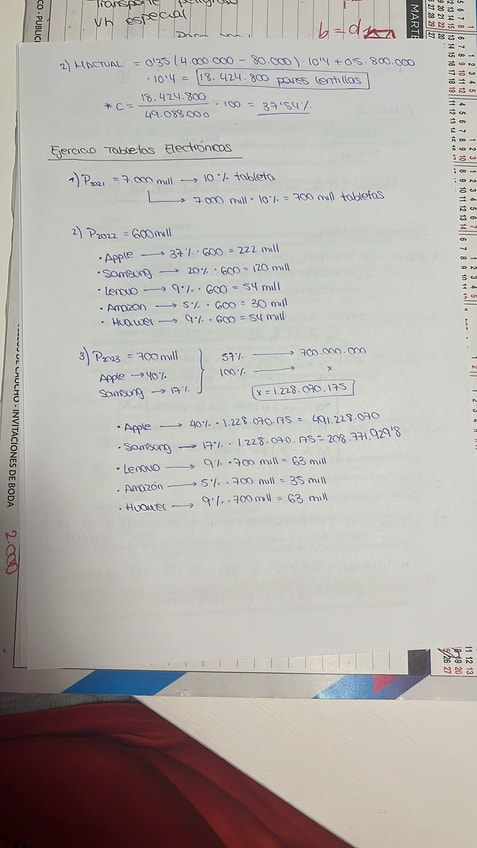 Transporte peligroso
Un especial
b=d
MART
2) MACTUAL = 0'35 (4.000.000 - 80.000) · 10'4 + 0'5 · 800.000
· 10'4 = 18.424.800 pares lentillas
* C = 18.424.800 / 49.088.000 · 100 = 37'54%
Ejercicio Tabletas Electrónicas
1) P2021 = 7.000 mill → 10% tableta
→ 7.000 mill · 10% = 700 mill tabletas
2) P2022 = 600 mill
· Apple → 37% · 600 = 222 mill
· Samsung → 20% · 600 = 120 mill
· Lenovo → 9% · 600 = 54 mill
· Amazon → 5% · 600 = 30 mill
· Huawei → 9% · 600 = 54 mill
3) P2023 = 700 mill } 57% → 700.000.000
Apple → 40% 100% → x
Samsung → 17% x = 1.228.070.175
· Apple → 40% · 1.228.070.175 = 491.228.070
· Samsung → 17% · 1.228.070.175 = 208.771.929'8
· Lenovo → 9% · 700 mill = 63 mill
· Amazón → 5% · 700 mill = 35 mill
· Huawei → 9% · 700 mill = 63 mill
CAUCHO - INVITACIONES DE BODA
2.000